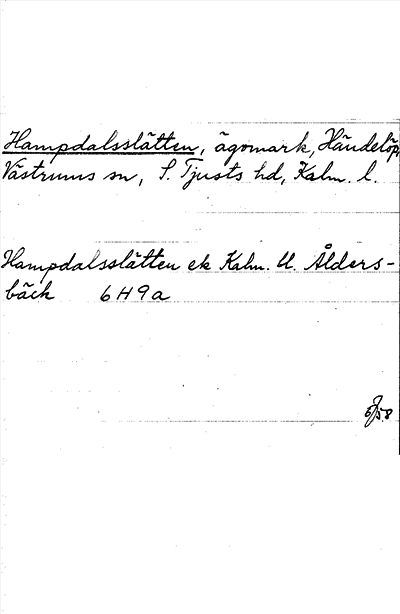 Hampdalsslätten, ägomark, Händelöp,
Västrums sn, S. Tjusts hd, Kalm. l.
Hampdalsslätten ek Kalm. bl. Ålders-
bäck 6H9a